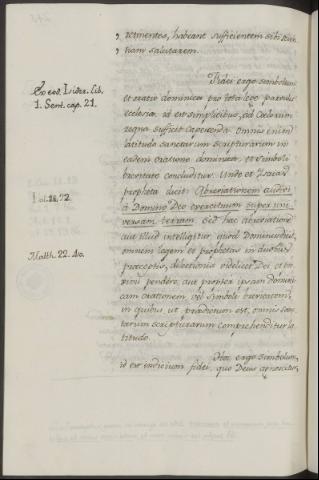 , retinentes, habeant sufficientem sibi scien
, tiam salutarem.
Fidei ergo symbolum
et oratio dominica pro tota lege parvulis
ecclesiæ, id est simplicibus, ad Cœlorum
regna sufficit capescenda. Omnis enim
latitudo sanctarum scripturarum in
eadem oratione dominica, et symboli
brevitate concluditur. Unde et Isaias
propheta dicit: Abreviationem audivi
à Domino Deo exercituum super uni
versam terram. Sed hæc abreviatione
aut illud intelligitur quod Dominus dicit,
omnem legem et prophetas in duobus
præceptis, dilectionis videlicet Dei et pro
ximi pendere; aut propter ipsam domini
cam orationem vel symboli brevitatem,
in quibus, ut prædictum est, omnis sanc
tarum scripturarum comprehenditur la
titudo.
Hoc ergo symbolum,
id est indicium fidei, quo Deus agnoscitur,
Ex eod. Lidor. lib.
1. Sent. cap. 21.
Isai. 28, 22.
Matth. 22. 40.